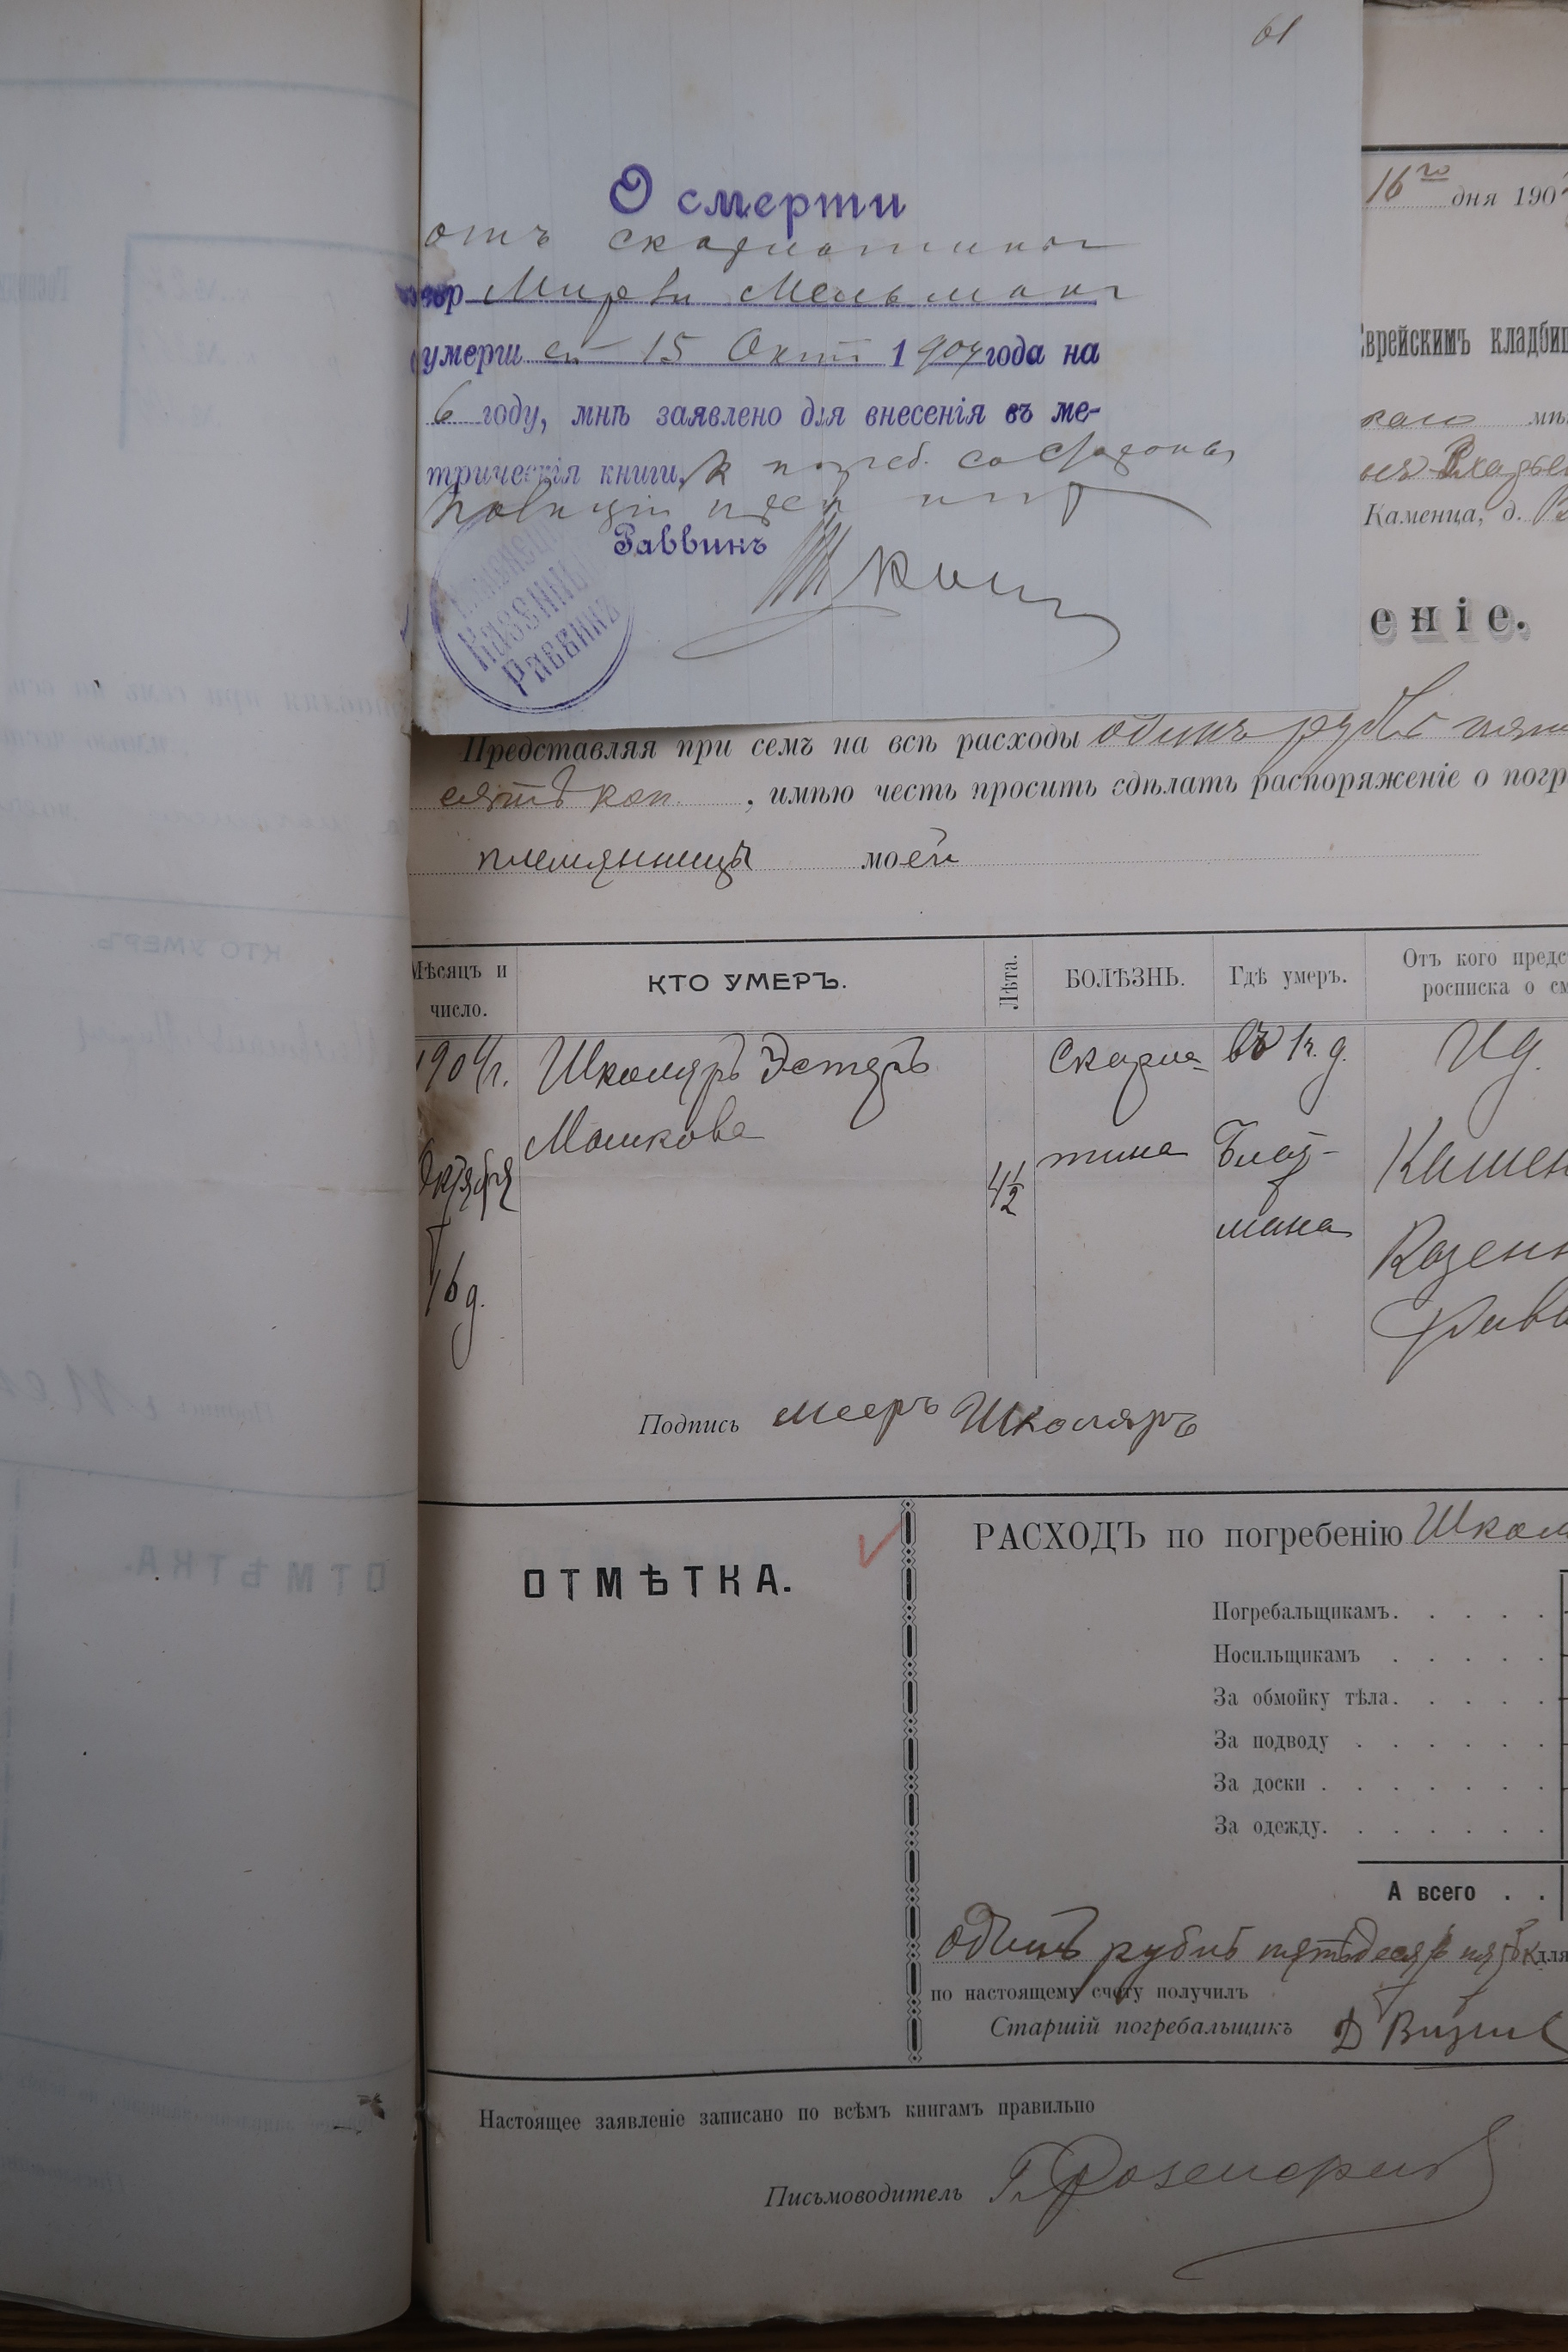 61
О смерти
отъ скарлатины
Мирли Мельманъ
умерш ей 15 Окт 1904 года на
6 году, мнѣ заявлено для внесенія въ ме-
трическія книги, к погреб. со стороны
полиціи преп
Раввинъ
Казенный
Раввинъ
16го дня 190
Еврейскимъ кладбищ
мнѣ
Каменца, д.
еніе.
Представляя при семъ на всѣ расходы одинъ рубль пять
десятъ коп. , имѣю честь просить сдѣлать распоряженіе о погр
племянницы моей
Мѣсяцъ и число.
КТО УМЕРЪ.
Лѣта.
БОЛѢЗНЬ.
Гдѣ умеръ.
Отъ кого предс
росписка о см
1904 г.
Октября
16 д.
Школяръ Эстеръ
Мошкова
4½
Скарла-
тина
въ к. д.
мана
Камен
Казенн
Равв
Подпись Мееръ Школяръ
ОТМѢТКА.
РАСХОДЪ по погребенію Школ
Погребальщикамъ.
Носильщикамъ
За обмойку тѣла.
За подводу
За доски
За одежду.
А всего
Одинъ рубль пятьдесятъ пять к для
по настоящему счету получилъ
Старшій погребальщикъ Д
Настоящее заявленіе записано по всѣмъ книгамъ правильно
Письмоводитель